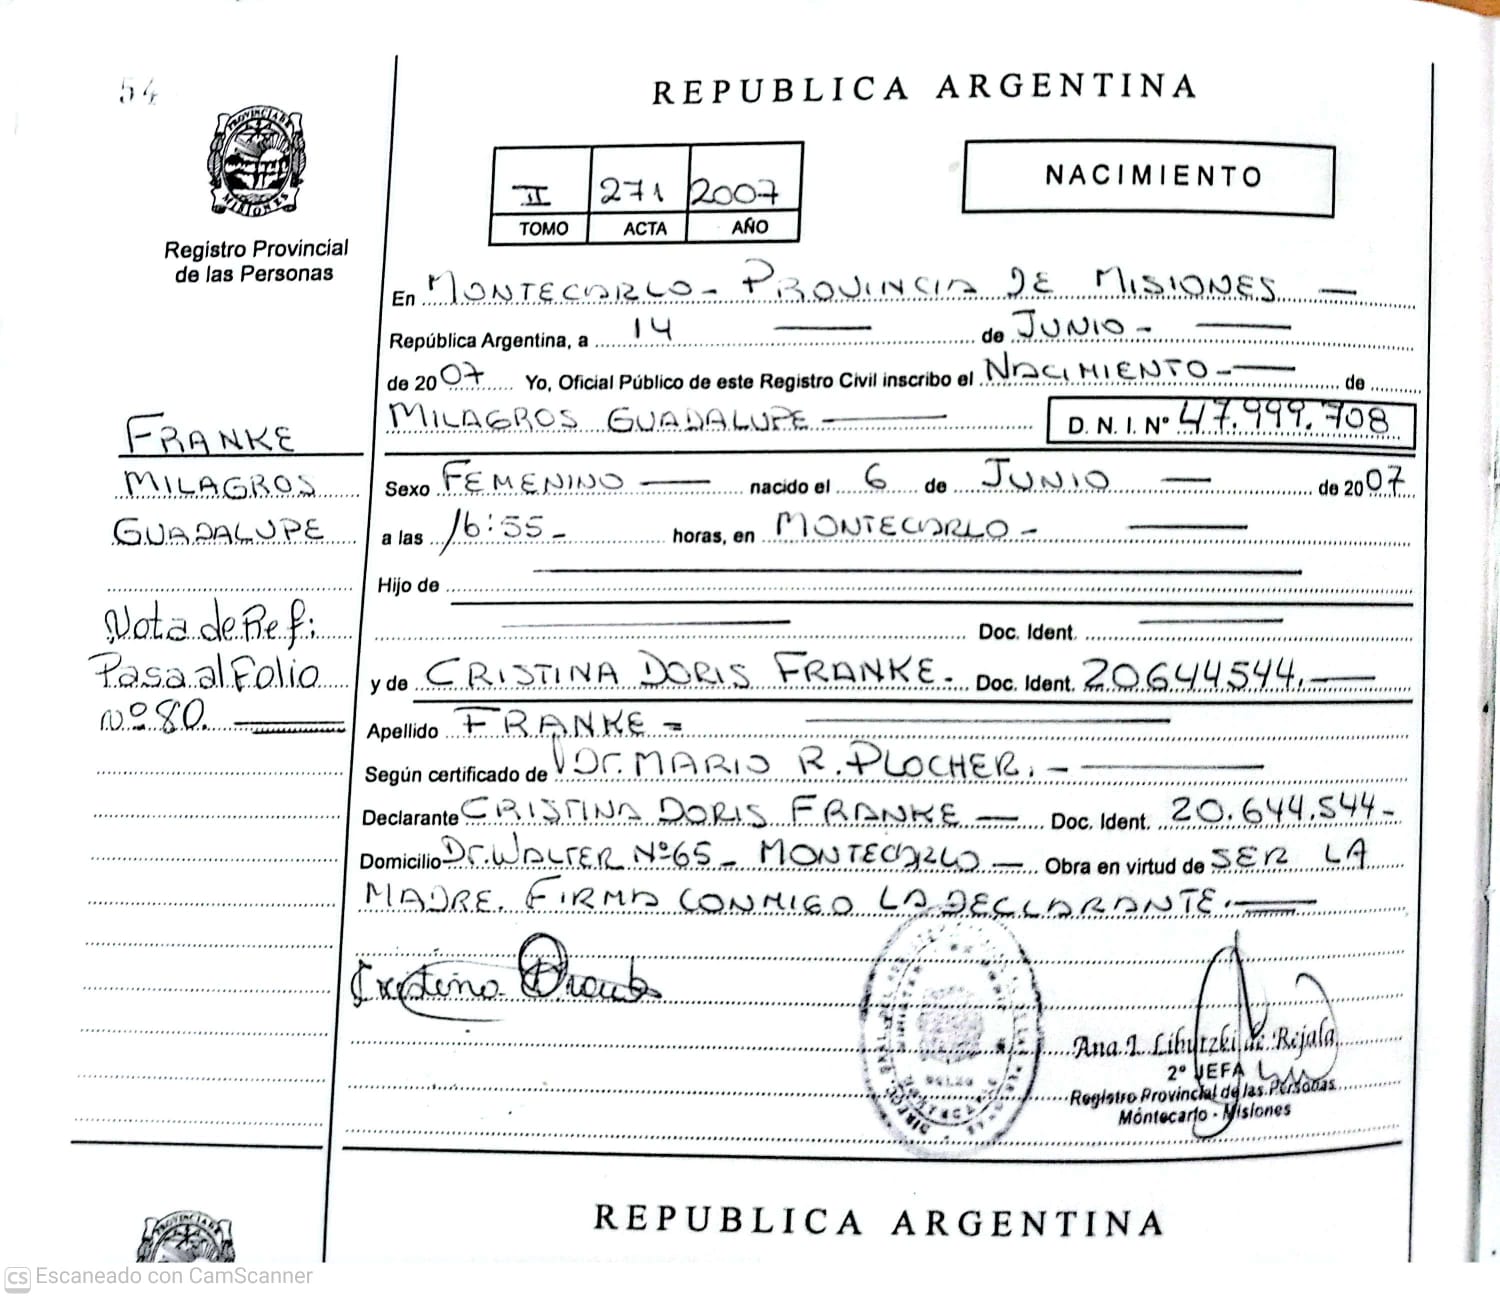 54
REPUBLICA ARGENTINA
PROVINCIA DE
MISIONES
Registro Provincial
de las Personas
II 271 2007
TOMO ACTA AÑO
NACIMIENTO
En MONTECARLO - PROVINCIA DE MISIONES
República Argentina, a 14 de JUNIO -
de 2007 Yo, Oficial Público de este Registro Civil inscribo el NACIMIENTO - de
MILAGROS GUADALUPE D. N. I. Nº 47.999.708
FRANKE
MILAGROS
GUADALUPE
Sexo FEMENINO nacido el 6 de JUNIO de 2007
a las 16:55 - horas, en MONTECARLO -
Hijo de
Doc. Ident.
Nota de Ref:
Pasa al Folio
Nº 80.
y de CRISTINA DORIS FRANKE - Doc. Ident. 20644544. -
Apellido FRANKE =
Según certificado de Dr. MARIO R. PLOCHER. -
Declarante CRISTINA DORIS FRANKE - Doc. Ident. 20.644.544-
Domicilio Dr. WALTER Nº 65 - MONTECARLO - Obra en virtud de SER LA
MADRE. FIRMA CONMIGO LA DECLARANTE. -
Ana I. de Rejala
2º JEFA
Registro Provincial de las Personas
Montecarlo - Misiones
REPUBLICA ARGENTINA
PROVINCIA DE
CS Escaneado con CamScanner